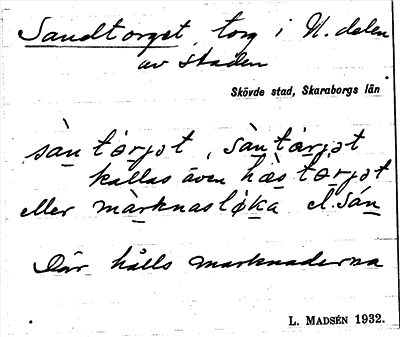 Sandtorget, torg i N. delen
av staden
Skövde stad, Skaraborgs län
sàntɔrjət, sàntɔrjət
kallas även hæstɔrjət
eller màrknasløka el. sán
Där hålls marknaderna
L. MADSÉN 1932.